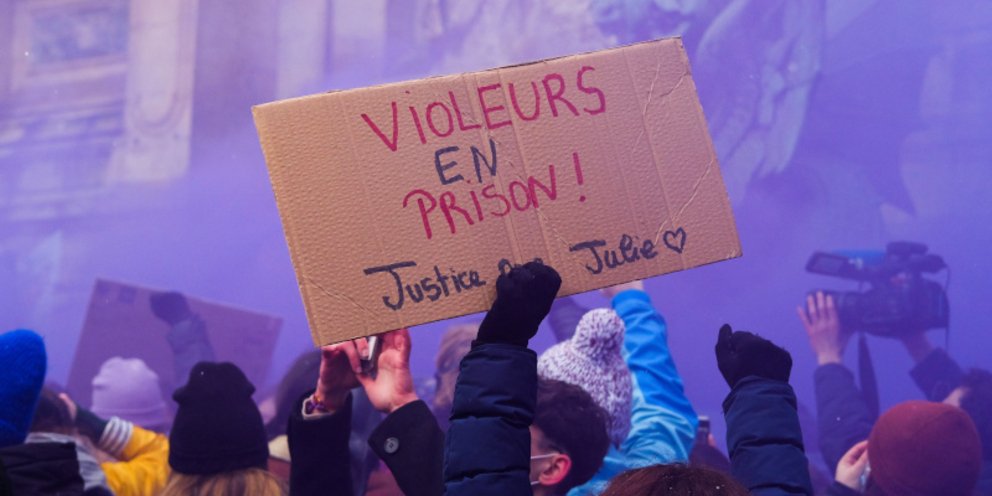 VIOLEURS
EN
PRISON !
Justice Julie ♡